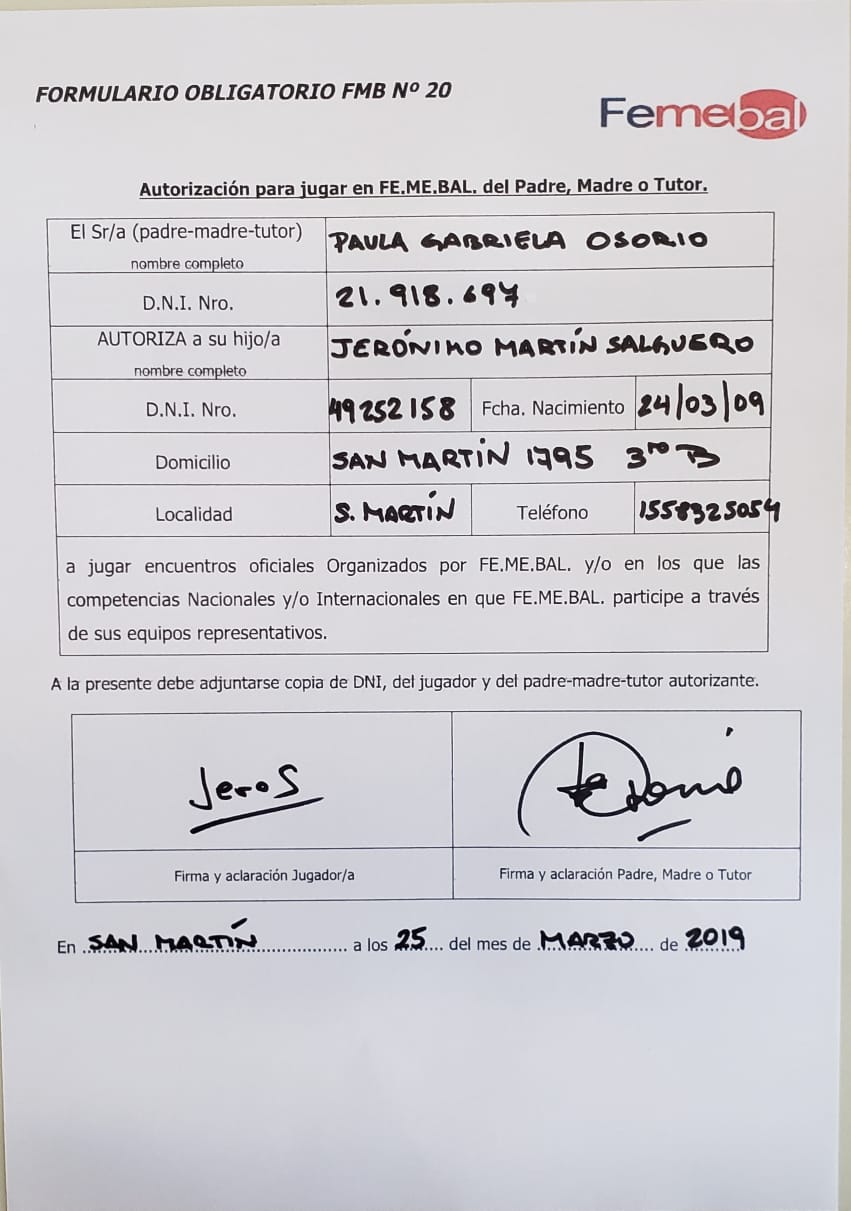 FORMULARIO OBLIGATORIO FMB Nº 20
Femebal
Autorización para jugar en FE.ME.BAL. del Padre, Madre o Tutor.
El Sr/a (padre-madre-tutor) PAULA GABRIELA OSORIO
nombre completo
D.N.I. Nro. 21.918.697
AUTORIZA a su hijo/a JERÓNIMO MARTÍN SALGUERO
nombre completo
D.N.I. Nro. 49252158 Fcha. Nacimiento 24/03/09
Domicilio SAN MARTÍN 1795 3ro B
Localidad S. MARTÍN Teléfono 1558325054
a jugar encuentros oficiales Organizados por FE.ME.BAL. y/o en los que las
competencias Nacionales y/o Internacionales en que FE.ME.BAL. participe a través
de sus equipos representativos.
A la presente debe adjuntarse copia de DNI, del jugador y del padre-madre-tutor autorizante.
JeroS
Firma y aclaración Jugador/a Firma y aclaración Padre, Madre o Tutor
En SAN MARTÍN a los 25 del mes de MARZO de 2019